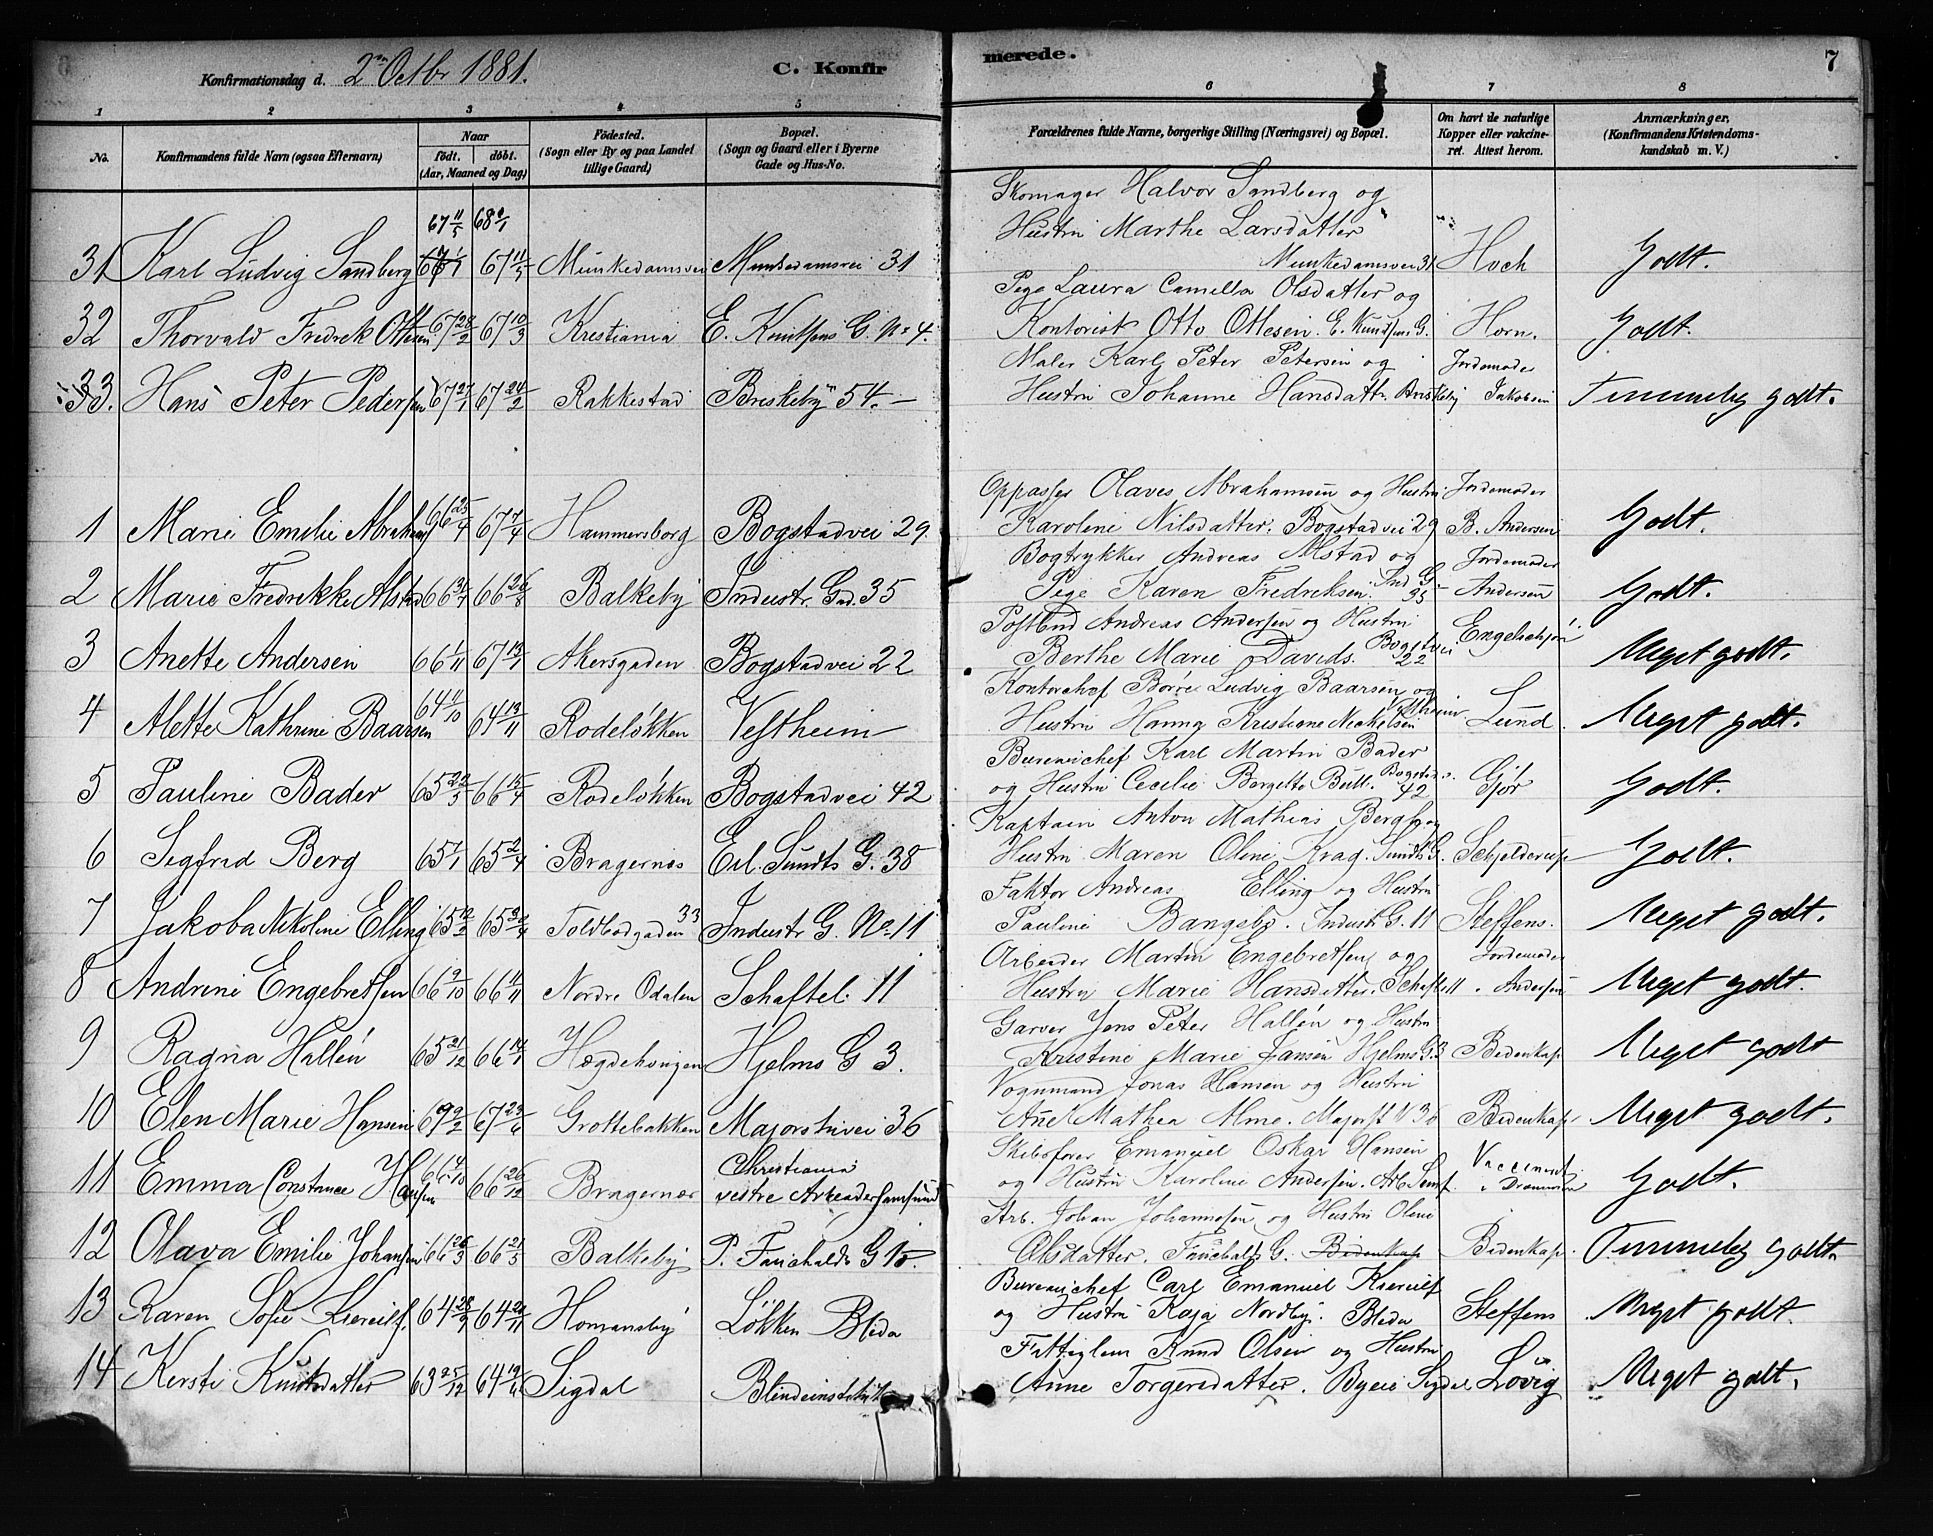 6
Konfirmationsdag d. 2den Octbr 1881.
C. Konfirmerede.
7
1 2 3 4 5 6 7 8
No.
Konfirmandens fulde Navn (ogsaa Efternavn)
Naar
født. døbt.
(Aar, Maaned og Dag)
Fødested.
(Sogn eller By og paa Landet
tillige Gaard)
Bopæl.
(Sogn og Gaard eller i Byerne
Gade og Hus-No.
Forældrenes fulde Navne, borgerlige Stilling (Næringsvei) og Bopæl.
Om havt de naturlige
Kopper eller vakcine-
ret. Attest herom.
Anmærkninger,
(Konfirmandens Kristendoms-
kundskab m. V.)
67 11/5 68 6/1
Skomager Halvor Sandberg og
Hustru Marthe Larsdatter
31 Karl Ludvig Sandberg 67 11/5 Munkedamsvei Munkedamsvei 31 Munkedamsvei 31 Hoch Godt.
Pige Laura Camilla Olsdatter og
32 Thorvald Fredrik Ottesen 67 28/2 67 10/3 Kristiania E. Knutsens G. No 4. Kontorist Otto Ottesen. E. Kundsens G. Horn. Godt.
Maler Karl Peter Petersen og Jordemoder
33. Hans Peter Pedersen 67 27/1 67 24/2 Rakkestad Briskeby 54. Hustru Johanne Hansdatter Briskeby Jakobsen Temmelig godt.
Oppasser Olaves Abrahamsen og Hustru Jordemoder
1 Marie Emilie Abraham 66 25/4 67 7/4 Hammersborg Bogstadvei 29. Karoline Nilsdatter. Bogstadvei 29 B. Andersen Godt.
Bogtrykker Andreas Alstad og Jordemoder
2 Marie Fredrikke Alstad 66 31/7 66 26/8 Balkeby Industr. Gad. 35 Pige Karen Fredriksen. Ind G. 35 Andersen Godt.
Postbud Andreas Andersen og Hustru
3 Anette Andersen 66 1/11 67 13/1 Akersgaden Bogstadvei 22 Berthe Marie Davids. Bogstvei 22 Engelschjøn Meget godt.
Kontorchef Børre Ludvig Baarsen og
4 Alette Kathrine Baarsen 64 11/10 64 13/11 Rodeløkken Vestheim Hustru Hanna Kristiane Mechelsen Vestheim Lund. Meget godt.
Bureauchef Karl Martin Bader
5 Pauline Bader 65 22/5 66 15/4 Rodeløkken Bogstadvei 42 og Hustru Cecilie Bergitte Bull. Bogstadv. 42 Gjør Godt.
Kaptain Anton Mathias Berg og
6 Sigfrid Berg 65 1/1 65 2/4 Bragernæs Eil. Sundts G. 38 Hustru Maren Oline Krag. Sundts G. Schjelderup Godt.
Faktor Andreas Elling og Hustru
7 Jakoba Nikoline Elling 65 12/2 Toldbodgaden 33 Industr G. No 11 Pauline Bangsbo. Industr G. 11 Steffens. Meget godt.
Arbeider Martin Engebretsen og Jordemoder
8 Andrine Engebretsen 66 9/10 66 4/11 Nordre Odalen Schaftel. 11 Hustru Marie Hansdatter. Schaftel 11. Andersen Meget godt.
Garver Jens Peter Hallén og Hustru
9 Ragna Hallén 65 21/12 66 14/1 Hægdehougen Hjelms G 3. Kristine Marie Jansen Hjelms G. 3 Bidenkap Meget godt
Vognmand Jonas Hansen og Hustru
10 Elen Marie Hansen 67 9/2 67 23/6 Grottebakken Majorstuvei 36 Ane Mathea Alme. Majorst V 36 Bidenkap. Meget godt.
Skibsfører Emanuel Oskar Hansen
11 Emma Constance Hansen 66 4/10 66 26/12 Bragernæs Christiania vestre Arbeidersamfund og Hustru Karoline Andersen. Arb. Samf. Vaccineret i Drammen Godt.
Arb. Johan Johannesen og Hustru Oline
12 Olava Emilie Johansen 66 26/3 66 21/5 Balkeby P. Fauchalds G 10. Olsdatter. Fauchalds G. Bidenkap Bidenkap. Temmelig godt.
Bureauchef Carl Emanuel Kierulf
13 Karen Sofie Kierulf. 64 28/9 64 20/11 Homansby Løkken Blida og Hustru Kaja Nordby. Blida Steffens Meget godt.
Fattiglem Knud Olsen og Hustru
14 Kersti Knutsdatter 63 25/12 64 Sigdal Blindeinstitut Anne Torgersdatter. Byeie Sigdal Løvig Meget godt.